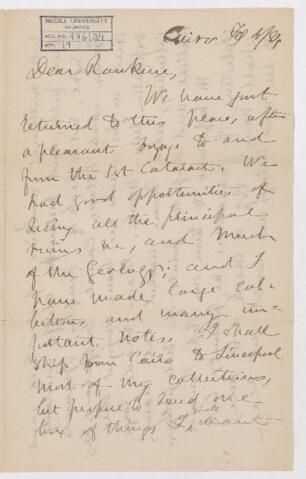 McGILL UNIVERSITY
ARCHIVES
ACC. NO. 436/34
REF. 19
Cairo Fey 4/84
Dear Rankine,
We have just
returned to this place, after
a pleasant voyage to and
from the 1st Cataract. We
had good opportunities of
seeing all the principal
ruins &c, and much
of the Geology; and I
have made large col-
lections and many im-
portant notes. I shall
ship from Cairo to Liverpool
most of my collections,
but propose to send one
box of things I shall want